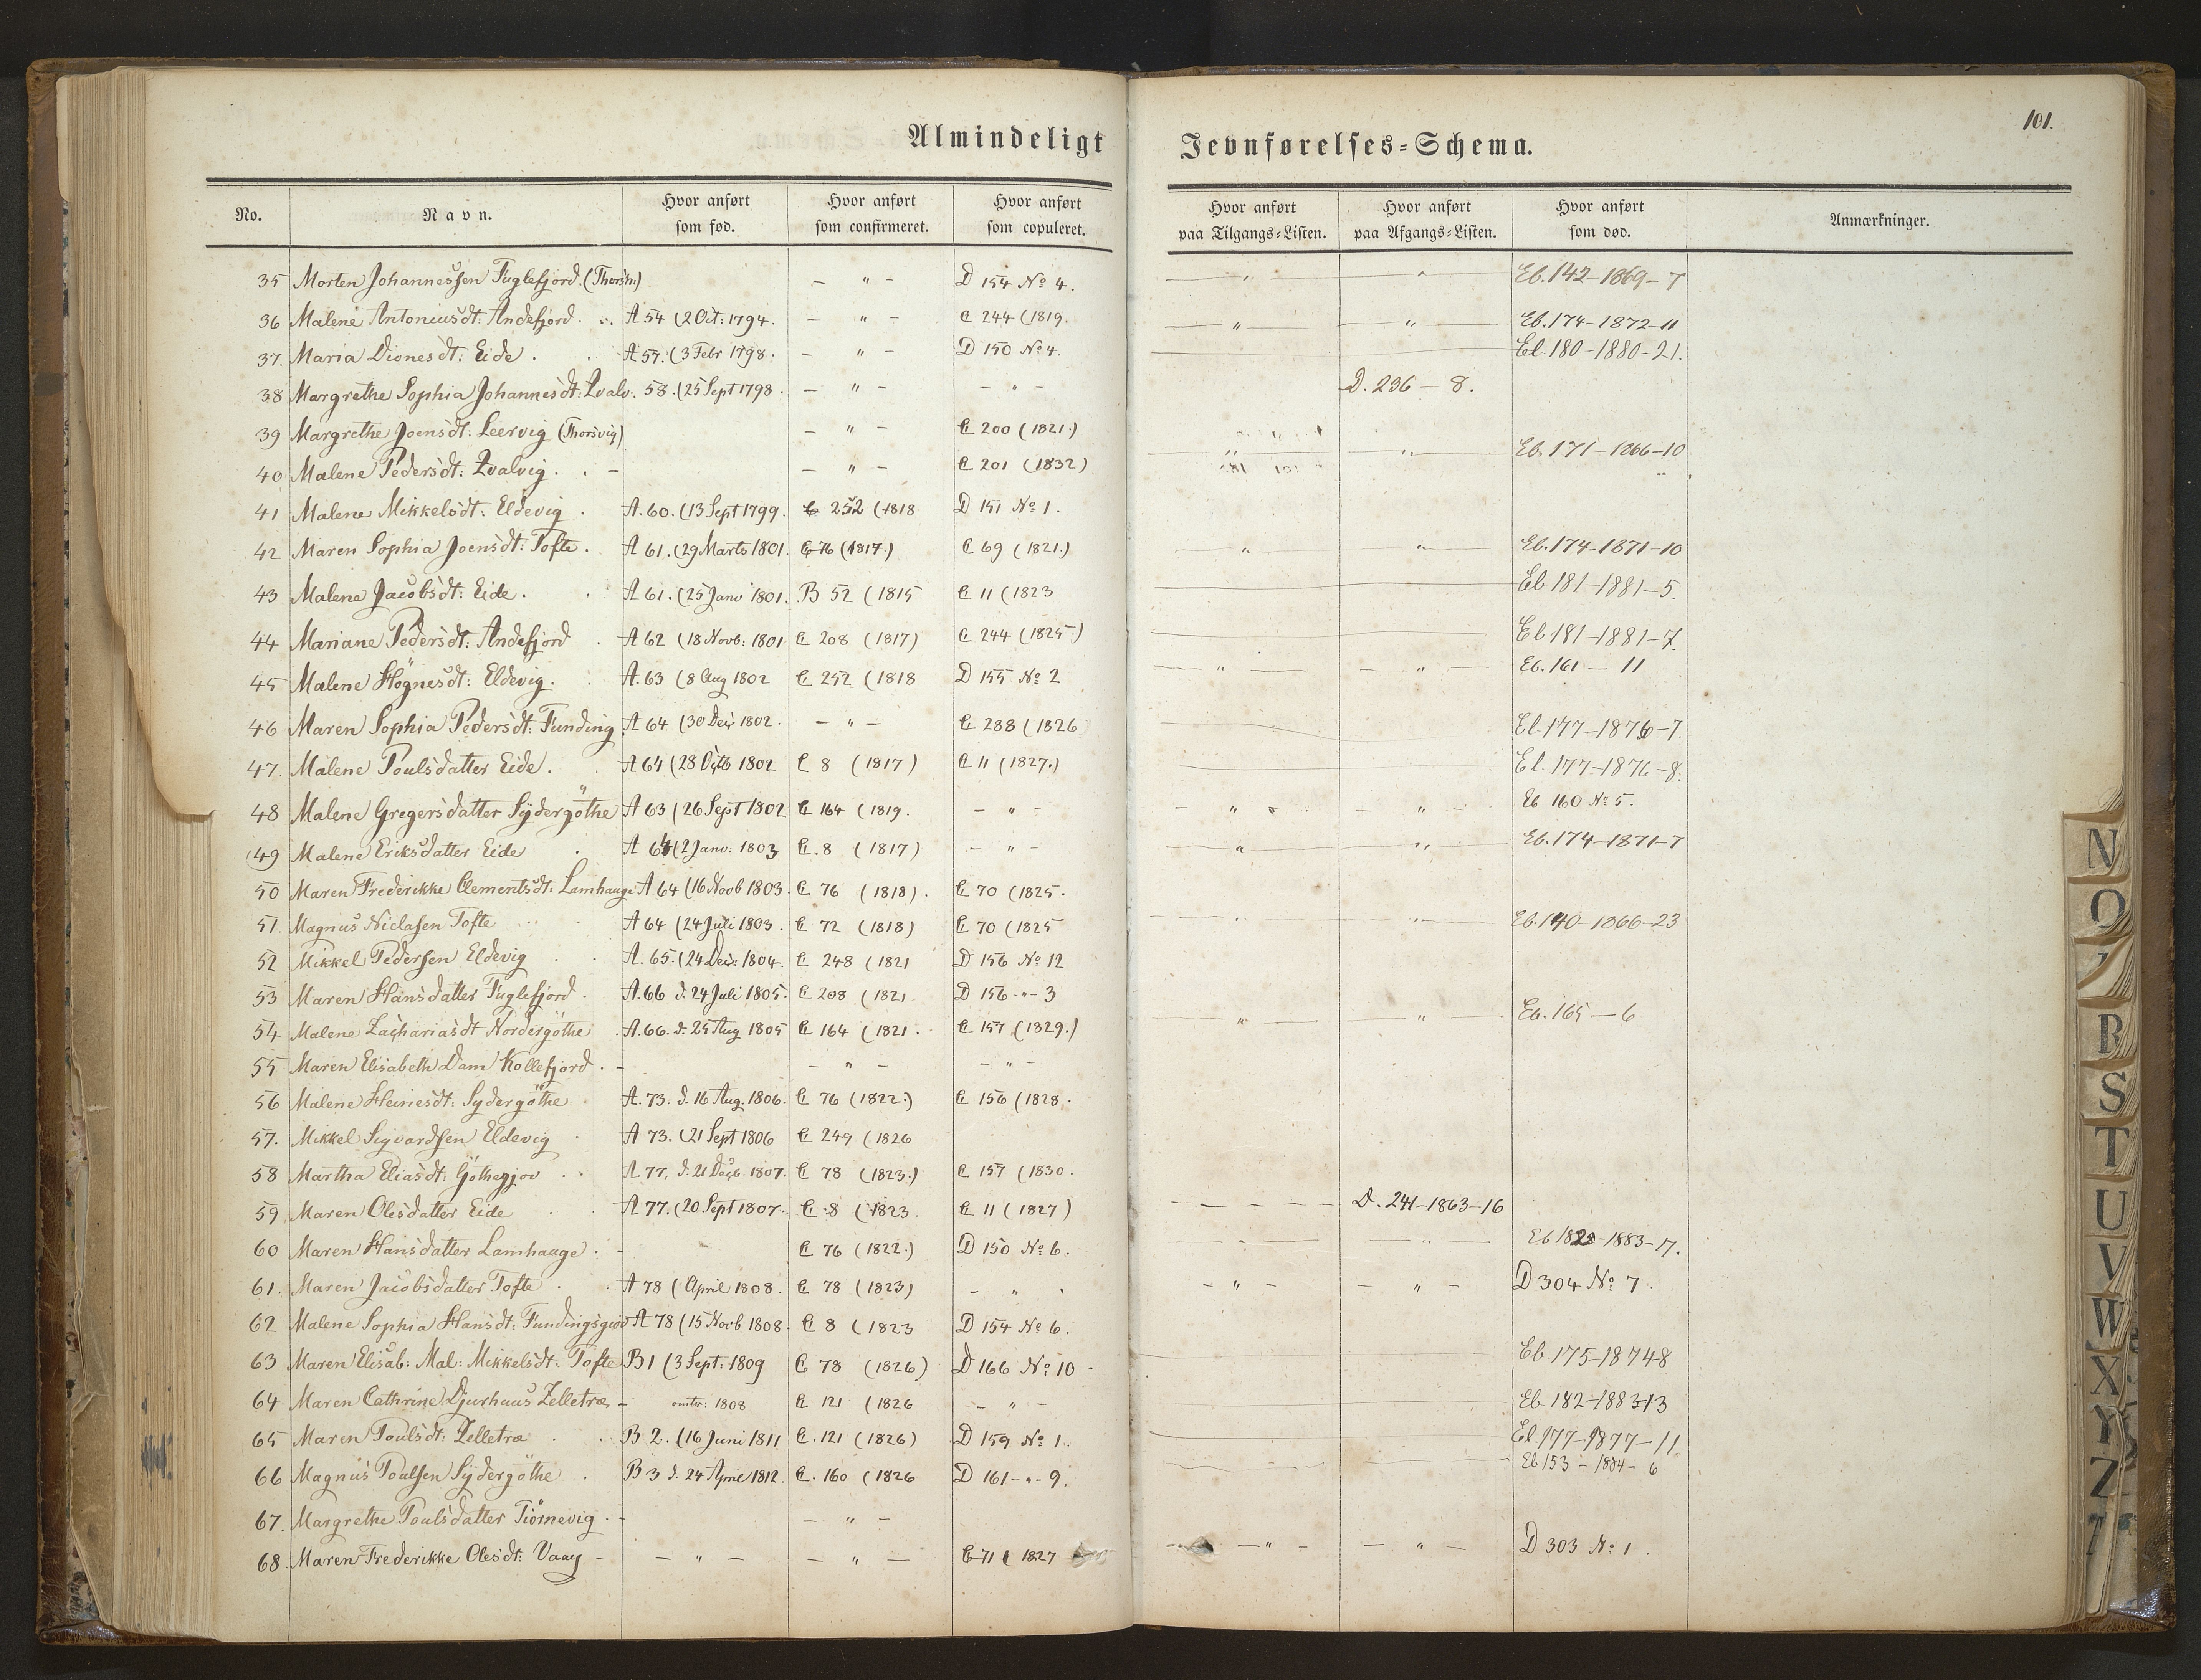 101.
Almindeligt Jevnførelses-Schema.
No. Navn. Hvor anført som fød. Hvor anført som confirmeret. Hvor anført som copuleret. Hvor anført paa Tilgangs-Listen. Hvor anført paa Afgangs-Listen. Hvor anført som død. Anmærkninger.
35 Morten Johannessen Fuglefjord. (Thorsh:) - " - D 154 No 4. " " Eb. 142-1869-7
36 Malene Antoniusdt: Andefjord. A 54 (2 Oct: 1794. - " - C 244 (1819. " " Eb. 174-1872-11
37. Maria Dionesdt: Eide. A 57. (3 Febr 1798. - " - D 150 No 4. Eb. 180-1880-21.
38 Margrethe Sophia Johannesdt: Qvalv. 58. (25 Sept 1798. - " - - " - D. 236 - 8.
39 Margrethe Joensdt: Leervig (Thorsvig) - " - C 200 (1821.)
40 Malene Pedersdt: Qvalvig. - - " - C 201 (1832) " " Eb. 171-1866-10
41 Malene Mikkelsdt: Eldevig. A. 60. (13 Sept 1799. C 252 (1818 D 151 No 1.
42 Maren Sophia Joensdt: Tofte. A 61. (29 Marts 1801. C 76 (1817.) C 69 (1821.) " " Eb. 174-1871-10
43 Malene Jacobsdt: Eide. A 61. (25 Janv 1801. B 52 (1815 C 11 (1823 Eb 181-1881-5.
44 Mariane Pedersdt: Andefjord. A 62 (18 Novb: 1801 C 208 (1817) C 244 (1825) Eb 181-1881-7.
45 Malene Høgnesdt: Eldevig. A. 63 (8 Aug 1802 C 252 (1818 D 155 No 2 " " Eb. 161 - 11
46 Maren Sophia Pedersdt: Funding. A 64 (30 Dec 1802. - " - C 288 (1826 Eb. 177-1876-7.
47. Malene Poulsdatter Eide. A 64 (28 Octb 1802 C 8 (1817) C 11 (1827.) Eb. 177-1876-8.
48 Malene Gregersdatter Sydergöthe A 63 (26 Sept 1802 C 164 (1819. - " - " " Eb 160 No 5.
49 Malene Eriksdatter Eide A 64 (2 Janv: 1803 C. 8 (1817) - " - " " Eb. 174-1871-7
50 Maren Frederikke Clementsdt: Lamhauge A 64 (16 Novb 1803. C 76 (1818). C 70 (1825.
51 Magnus Niclasen Tofte A 64 (24 Juli 1803. C 72 (1818) C 70 (1825 " " Eb. 140-1866-23
52 Mikkel Pedersen Eldevig A. 65. (24 Dec: 1804. C 248 (1821 D 156 No 12
53 Maren Hansdatter Fuglefjord. A. 66 d. 24 Juli 1805. C 208 (1821 D 156 - " - 3
54 Malene Zachariasdt Nordergöthe. A. 66. d. 25 Aug 1805 C 164 (1821. C 157 (1829.) " " Eb. 165 - 6
55 Maren Elisabeth Dam Kollefjord. - - " - - " -
56 Malene Heinesdt: Sydergöthe A. 73. d. 16 Aug. 1806. C 76 (1822.) C 156 (1828.
57. Mikkel Sigvardsen Eldevig A 73. (21 Sept 1806 C 249 (1826
58 Martha Eliasdt: Göthegjov A. 77. d. 21 Decb. 1807. C 78 (1823.) C 157 (1830.
59 Maren Olesdatter Eide A 77. (20 Sept 1807. C 8 (1823. C 11 (1827) D. 241-1863-16
60 Maren Hansdatter Lamhauge. - C 76 (1822.) D 150 No 6. Eb 182-1883-17.
61. Maren Jacobsdatter Tofte. A 78 (April 1808. C 78 (1823) - " - - " - - " - D 304 No 7.
62 Malene Sophia Hansdt: Fundingsgiov A 78 (15 Novb 1808. C 8 (1823 D 154 No 6.
63 Maren Elisab: Mal: Mikkelsdt: Tofte B 1 (3 Sept: 1809 C 78 (1826) D 166 No 10 Eb. 175-1874-8
64 Maren Cathrine Djurhuus Zelletræ - 1808 C 121 (1826 - " - Eb. 182-1883-13
65 Maren Poulsdt: Zelletræ B 2. (16 Juni 1811 C. 121 (1826) D 159 No 1. Eb. 177-1877-11.
66 Magnus Poulsen Sydergöthe B 3 d. 24 April 1812. C. 160 (1826 D 161 - " - 9. Eb 153 - 1884 - 6
67. Margrethe Poulsdatter Tiörnevig. - - " -
68. Maren Frederikke Olesdt: Vaag - - " - - " - C 71 (1827 - " - - " - D 303 No 1.
N
O
R
S
T
U
V
W
X
Y
Z